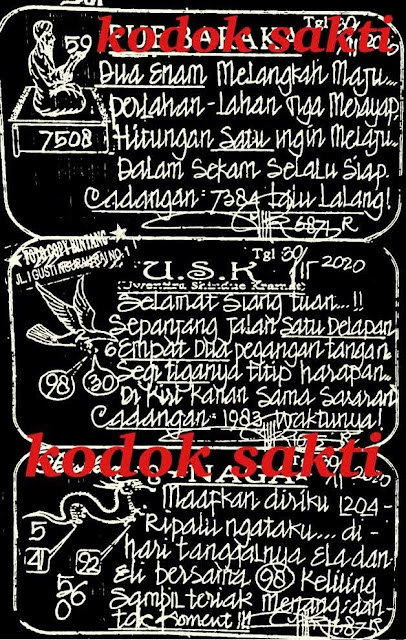 Tgl 30
2020
kodok sakti
59
7508
Dua Enam Melangkah Maju...
perlahan-lahan Tiga Merayap.
Hitungan Satu ingin Melaju..
Dalam Sekam Selalu Siap.
Cadangan = 7384 lalu Lalang!
6871 R
FOTO COPY BINTANG
JL. I GUSTI NGURAH RAI NO. 1
U.S.K
Tgl 30/11 2020
Selamat Siang tuan...!!
Sepanjang Jalan Satu Delapan
6 Empat Dua pegangan tangan..
Segi tiganya titip harapan...
98 30
Di Kiri Kanan Sama Sasaran
Cadangan = 1983 Waktunya!
kodok sakti
NAGA
2020
Maafkan diriku 1204-
Kipalii ngataku... di-
hari tanggalnya, Ela dan
Eli bersama 98 Keliling
Sambil teriak Menang : dan-
tak komentt !!!
6871 R
5
41
92
56
0